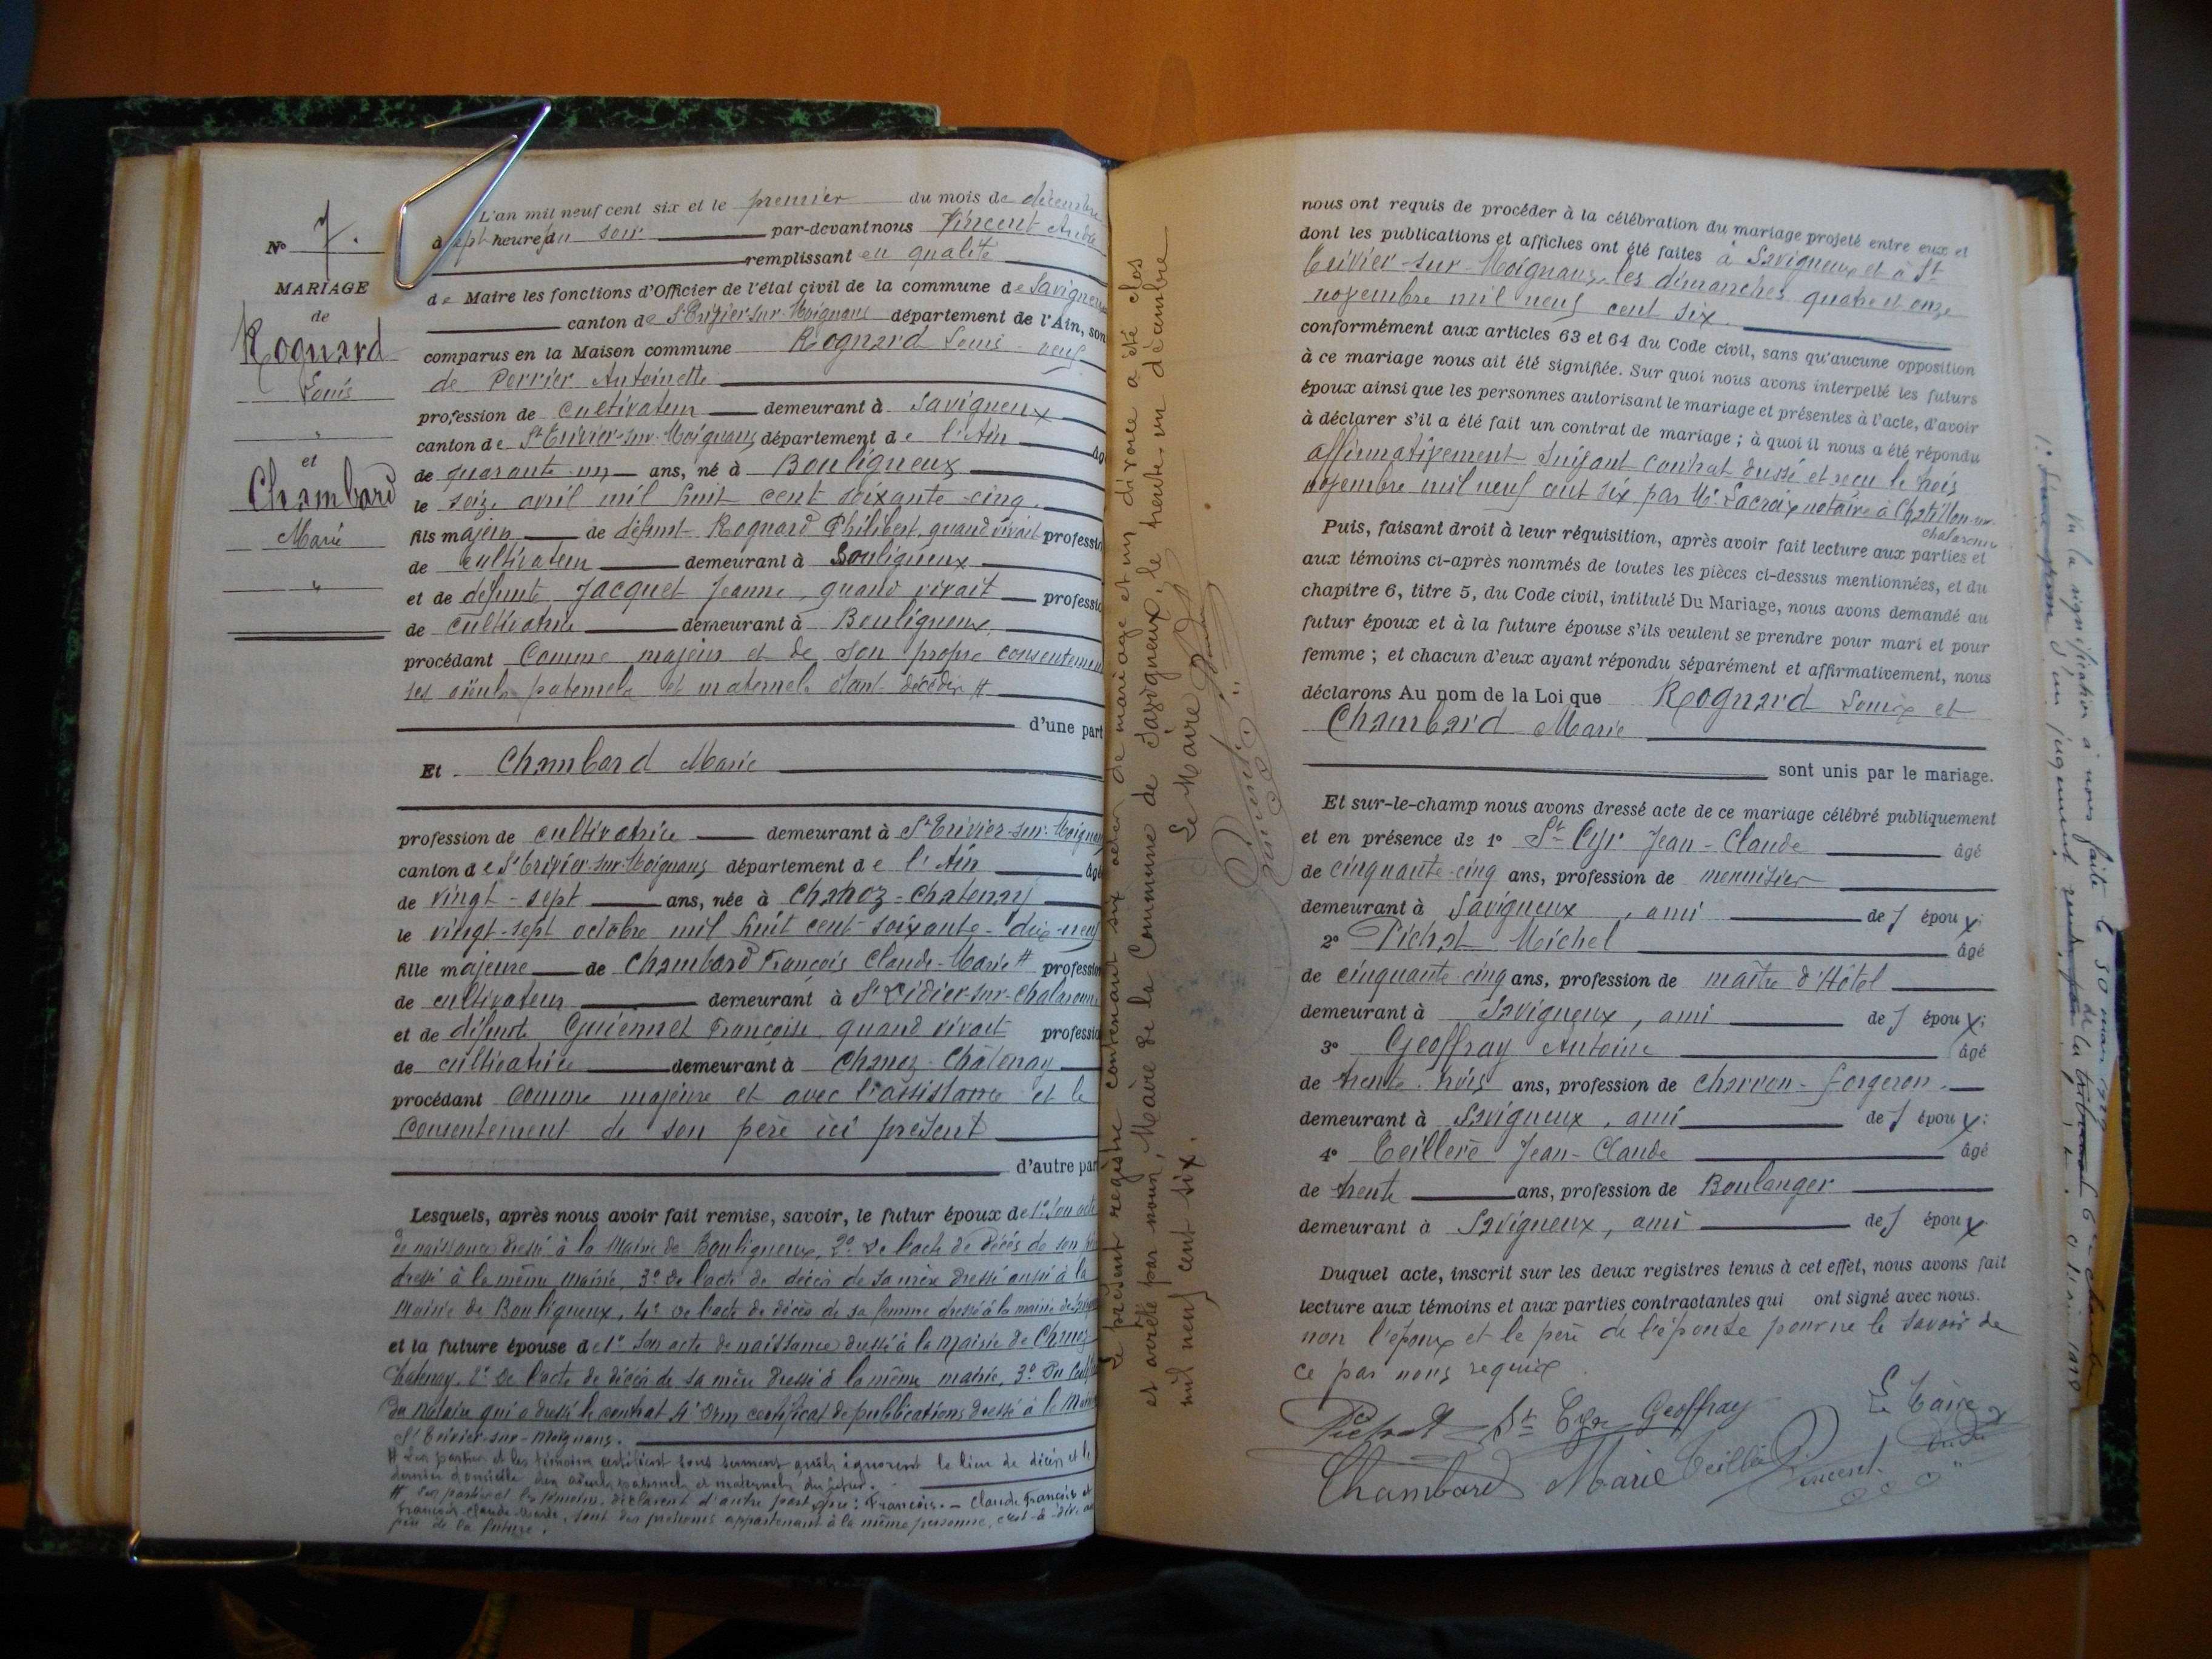 N° 7.
MARIAGE
de
Rognard
Louis
"
et
Chambard
Marie
"
L'an mil neuf cent six et le premier du mois de décembre
à sept heures du soir par-devant nous Vincent André
remplissant en qualité
de Maire les fonctions d'Officier de l'état civil de la commune de Savigneux
canton de St Trivier-sur-Moignans département de l'Ain, sont
comparus en la Maison commune Rognard Louis veuf
de Perrier Antoinette
profession de cultivateur demeurant à Savigneux
canton de St Trivier-sur-Moignans département de l'Ain âgé
de quarante-un ans, né à Bouligneux
le seize avril mil huit cent soixante-cinq
fils majeur de défunt Rognard Philibert, quand vivait profession
de cultivateur demeurant à Bouligneux
et de défunte Jacquet Jeanne, quand vivait profession
de cultivatrice demeurant à Bouligneux,
procédant comme majeur et de son propre consentement
ses aïeuls paternels et maternels étant décédés #
d'une part
Et Chambard Marie
profession de cultivatrice demeurant à St Trivier-sur-Moignans
canton de St Trivier-sur-Moignans département de l'Ain âgé
de vingt-sept ans, née à Chanoz-Chatenay
le vingt-sept octobre mil huit cent soixante-dix-neuf
fille majeure de Chambard François Claude-Marie # profession
de cultivateur demeurant à St Didier-sur-Chalaronne
et de défunte Guiennet Françoise quand vivait profession
de cultivatrice demeurant à Chanoz-Châtenay
procédant comme majeure et avec l'assistance et le
consentement de son père ici présent
d'autre part
Lesquels, après nous avoir fait remise, savoir, le futur époux de 1° son acte
de naissance dressé à la Mairie de Bouligneux, 2° de l'acte de décès de son
dressé à la même mairie, 3° de l'acte de décès de sa mère dressé aussi à la
Mairie de Bouligneux, 4° de l'acte de décès de sa femme dressé à la mairie de
et la future épouse de 1° son acte de naissance dressé à la Mairie de Chanoz
Chatenay, 2° de l'acte de décès de sa mère dressé à la même mairie, 3° du
du Notaire qui a dressé le contrat 4° d'un certificat de publications dressé à la Mairie
St Trivier-sur-Moignans.
# Les parties et les témoins certifient sous serment qu'ils ignorent le lieu de décès et le
dernier domicile des aïeuls paternels et maternels du futur.
# Les parties et les témoins déclarent d'autre part que: François. - Claude François et
François-Claude-Marie, sont des prénoms appartenant à la même personne, c'est-à-dire au
père de la future.
Le présent registre contenant six actes de mariage et un divorce a été clos
et arrêté par nous, Maire de la Commune de Savigneux, le trente-un décembre
mil neuf cent six.
Le Maire
nous ont requis de procéder à la célébration du mariage projeté entre eux et
dont les publications et affiches ont été faites à Savigneux et à St
Trivier-sur-Moignans, les dimanches quatre et onze
novembre mil neuf cent six
conformément aux articles 63 et 64 du Code civil, sans qu'aucune opposition
à ce mariage nous ait été signifiée. Sur quoi nous avons interpellé les futurs
époux ainsi que les personnes autorisant le mariage et présentes à l'acte, d'avoir
à déclarer s'il a été fait un contrat de mariage ; à quoi il nous a été répondu
affirmativement suivant contrat dressé et reçu le trois
novembre mil neuf cent six par Me Lacroix notaire à Chatillon-sur-
Chalaronne
Puis, faisant droit à leur réquisition, après avoir fait lecture aux parties et
aux témoins ci-après nommés de toutes les pièces ci-dessus mentionnées, et du
chapitre 6, titre 5, du Code civil, intitulé Du Mariage, nous avons demandé au
futur époux et à la future épouse s'ils veulent se prendre pour mari et pour
femme ; et chacun d'eux ayant répondu séparément et affirmativement, nous
déclarons Au nom de la Loi que Rognard Louis et
Chambard Marie
sont unis par le mariage.
Et sur-le-champ nous avons dressé acte de ce mariage célébré publiquement
et en présence de 1° St Cyr Jean-Claude âgé
de cinquante-cinq ans, profession de menuisier
demeurant à Savigneux, ami des époux;
2° Pichat Michel âgé
de cinquante-cinq ans, profession de maître d'Hôtel
demeurant à Savigneux, ami des époux;
3° Geoffray Antoine âgé
de trente-trois ans, profession de charron-forgeron.
demeurant à Savigneux, ami des époux;
4° Teillère Jean-Claude âgé
de trente ans, profession de Boulanger
demeurant à Savigneux, ami des époux.
Duquel acte, inscrit sur les deux registres tenus à cet effet, nous avons fait
lecture aux témoins et aux parties contractantes qui ont signé avec nous.
non l'époux et le père de l'épouse pour ne le savoir de
ce par nous requis
Pichat St Cyr Geoffray Le Maire
Chambard Marie Teillère Vincent André
Vu la signification à nous faite le 30 mars
1° d'une d'un jugement rendu par